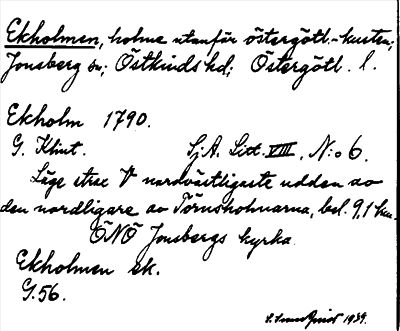 Ekholmen, holme utanför östergötl.-kusten;
Jonsberg sn; Östkinds hd; Östergötl. l.
Ekholm 1790.
G. Klint. Sj.A. Litt. VIII, N:o 6.
Läge strax V nordvästligaste udden av
den nordligare av Törnsholmarna, bel. 9,1 km.
ÖNÖ Jonsbergs kyrka
Ekholmen ek.
G.56.
1939.